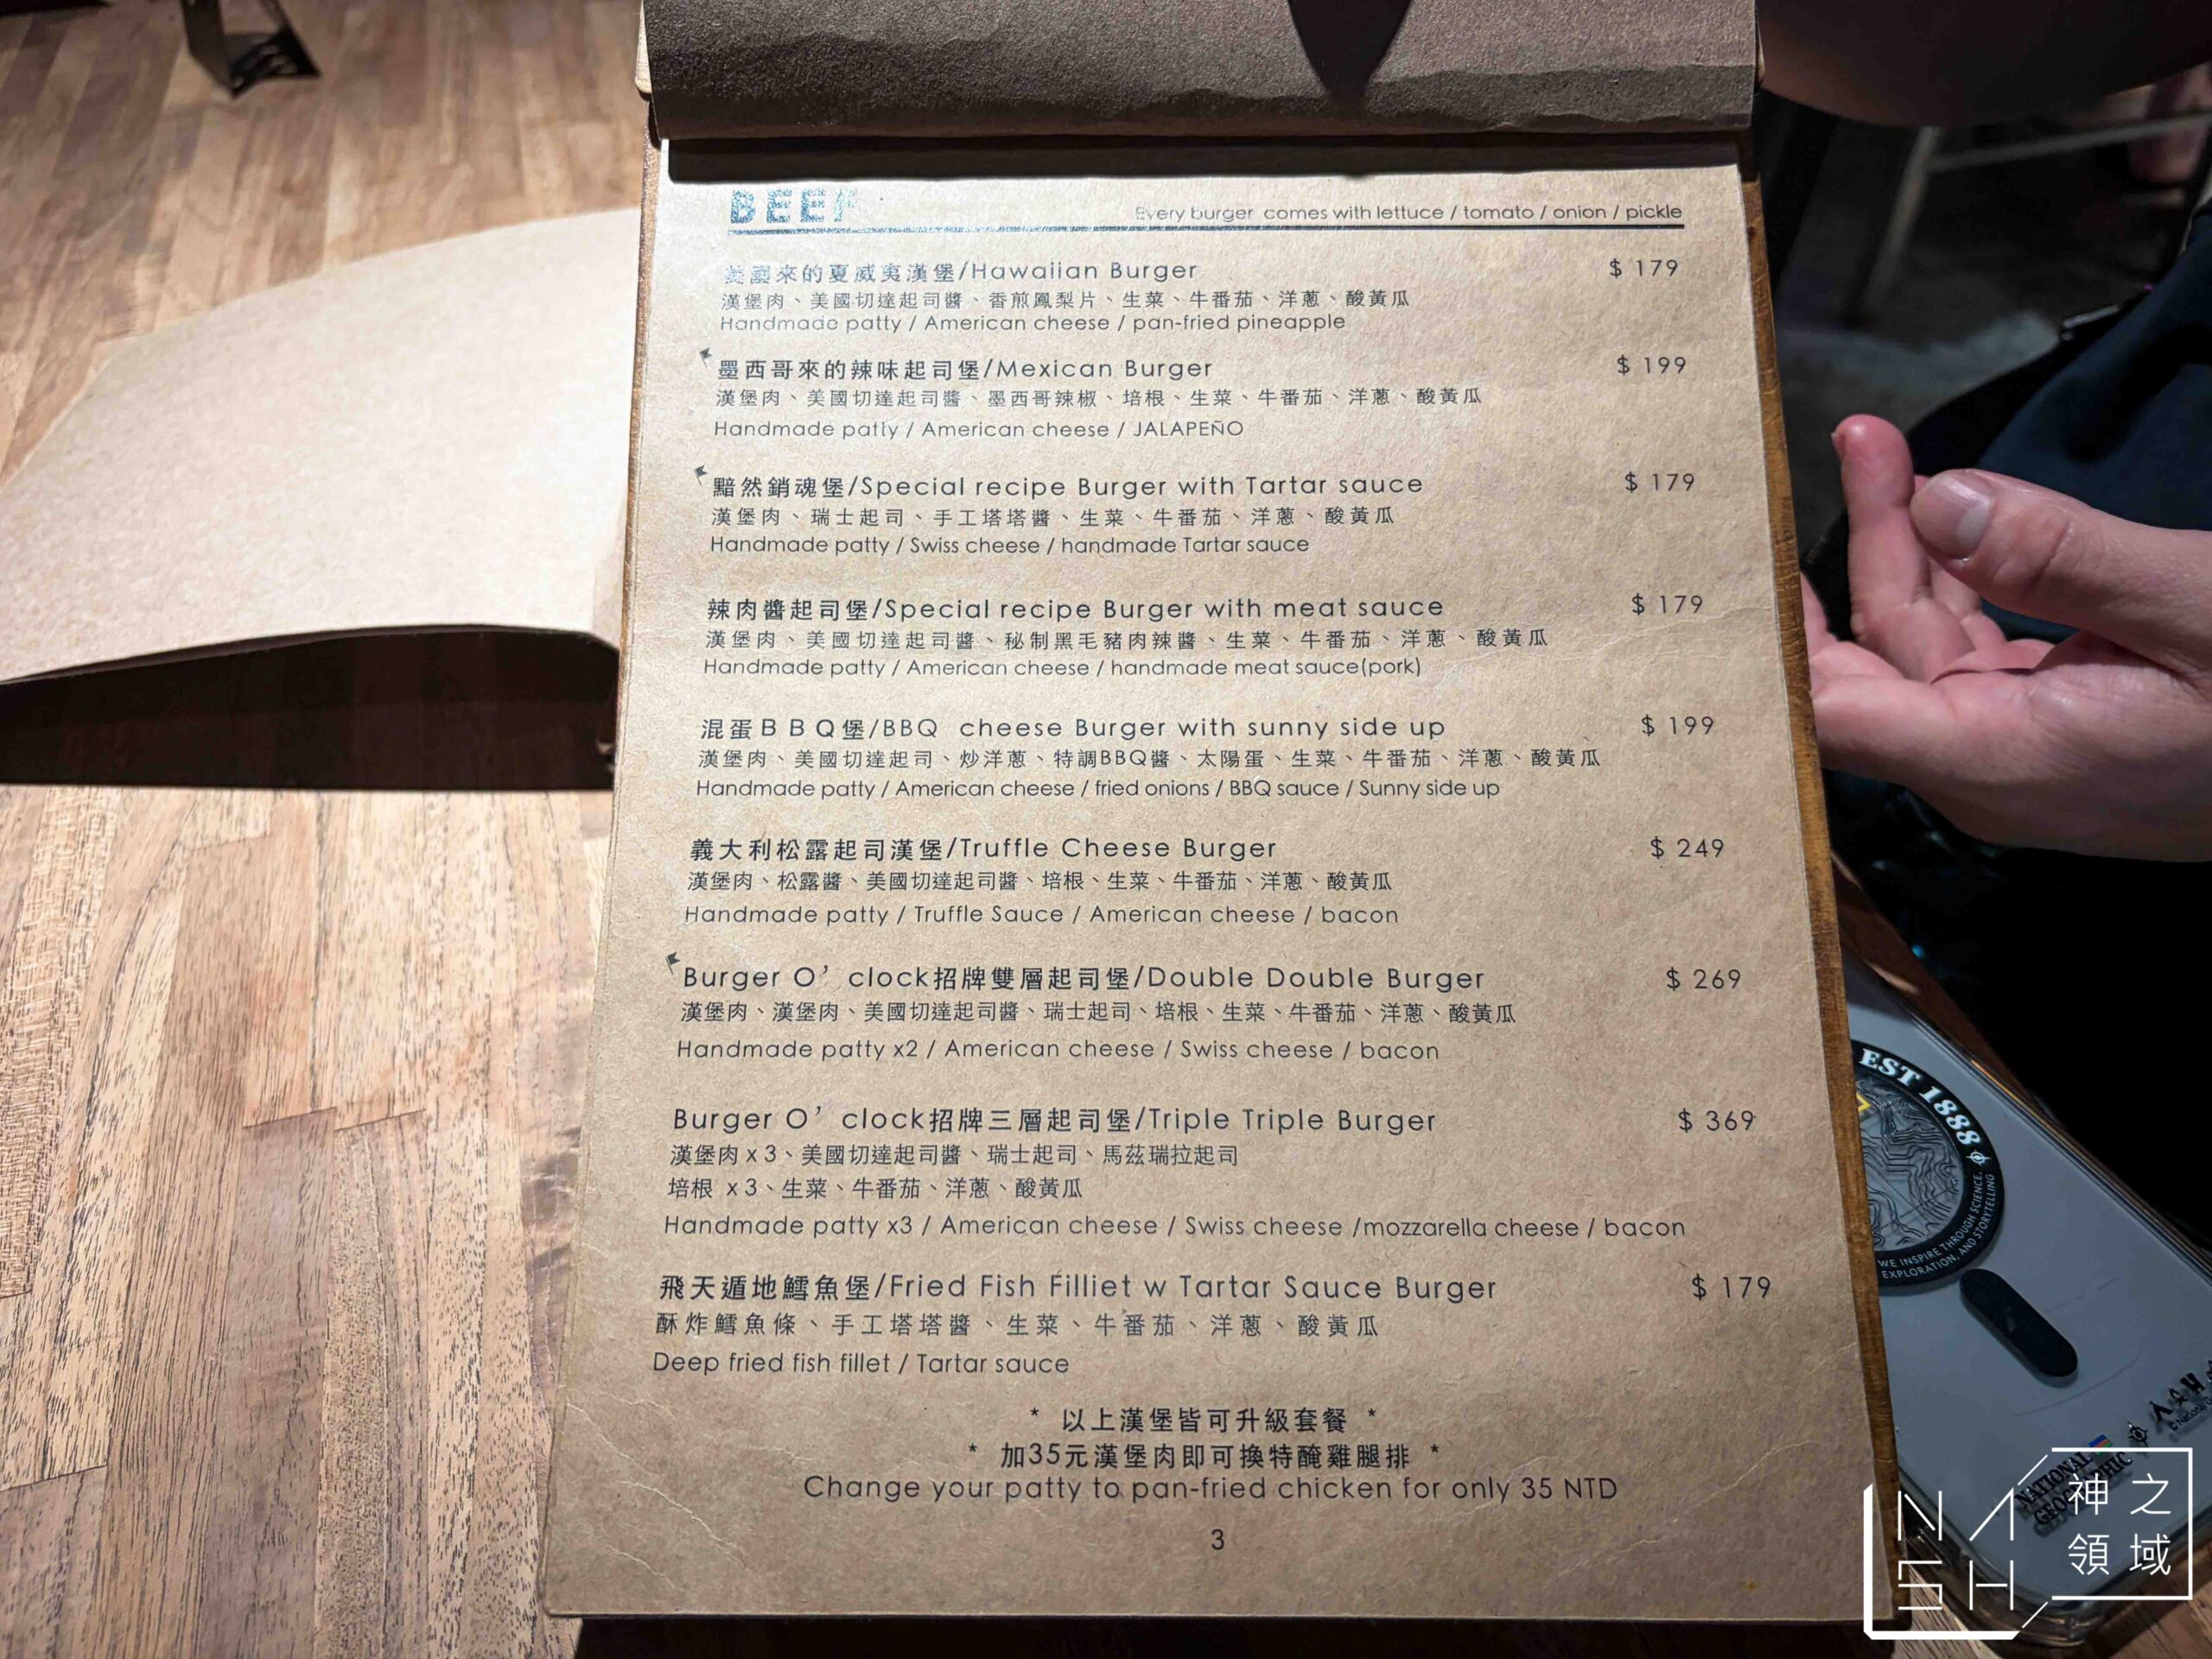 BEEF
Every burger comes with lettuce / tomato / onion / pickle
美國來的夏威夷漢堡/Hawaiian Burger $ 179
漢堡肉、美國切達起司醬、香煎鳳梨片、生菜、牛番茄、洋蔥、酸黃瓜
Handmade patty / American cheese / pan-fried pineapple
墨西哥來的辣味起司堡/Mexican Burger $ 199
漢堡肉、美國切達起司醬、墨西哥辣椒、培根、生菜、牛番茄、洋蔥、酸黃瓜
Handmade patty / American cheese / JALAPEÑO
黯然銷魂堡/Special recipe Burger with Tartar sauce $ 179
漢堡肉、瑞士起司、手工塔塔醬、生菜、牛番茄、洋蔥、酸黃瓜
Handmade patty / Swiss cheese / handmade Tartar sauce
辣肉醬起司堡/Special recipe Burger with meat sauce $ 179
漢堡肉、美國切達起司醬、秘制黑毛豬肉辣醬、生菜、牛番茄、洋蔥、酸黃瓜
Handmade patty / American cheese / handmade meat sauce(pork)
混蛋ＢＢＱ堡/BBQ cheese Burger with sunny side up $ 199
漢堡肉、美國切達起司、炒洋蔥、特調BBQ醬、太陽蛋、生菜、牛番茄、洋蔥、酸黃瓜
Handmade patty / American cheese / fried onions / BBQ sauce / Sunny side up
義大利松露起司漢堡/Truffle Cheese Burger $ 249
漢堡肉、松露醬、美國切達起司醬、培根、生菜、牛番茄、洋蔥、酸黃瓜
Handmade patty / Truffle Sauce / American cheese / bacon
Burger O’ clock招牌雙層起司堡/Double Double Burger $ 269
漢堡肉、漢堡肉、美國切達起司醬、瑞士起司、培根、生菜、牛番茄、洋蔥、酸黃瓜
Handmade patty x2 / American cheese / Swiss cheese / bacon
Burger O’ clock招牌三層起司堡/Triple Triple Burger $ 369
漢堡肉 x 3、美國切達起司醬、瑞士起司、馬茲瑞拉起司
培根 x 3、生菜、牛番茄、洋蔥、酸黃瓜
Handmade patty x3 / American cheese / Swiss cheese /mozzarella cheese / bacon
飛天遁地鱈魚堡/Fried Fish Filliet w Tartar Sauce Burger $ 179
酥炸鱈魚條、手工塔塔醬、生菜、牛番茄、洋蔥、酸黃瓜
Deep fried fish fillet / Tartar sauce
* 以上漢堡皆可升級套餐 *
* 加35元漢堡肉即可換特醃雞腿排 *
Change your patty to pan-fried chicken for only 35 NTD
3
EST 1888
WE INSPIRE THROUGH SCIENCE,
EXPLORATION, AND STORYTELLING
NATIONAL
GEOGRAPHIC
NASH
神之
領域